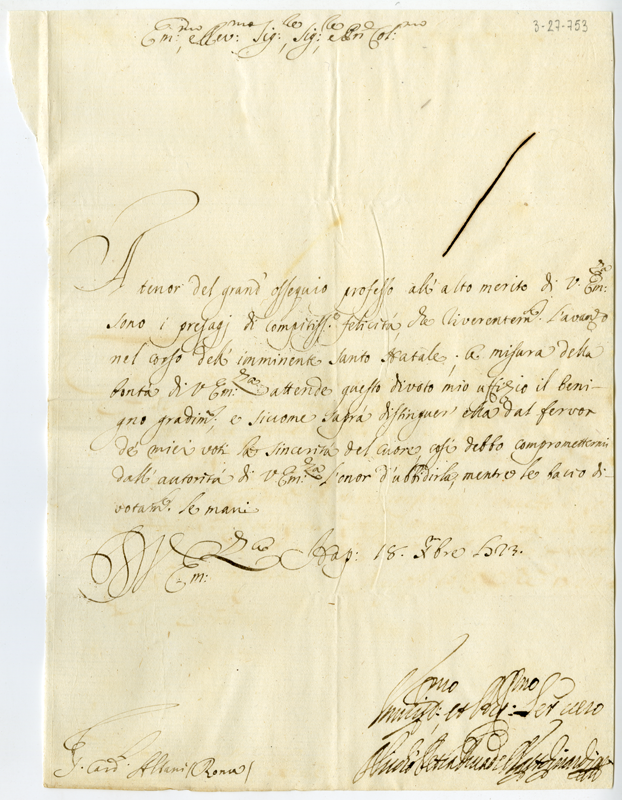 3-27-753
Em:mo e Rev:mo Sig:re Sig:re e Pn Col:mo
A tenor del grand' ossequio professo all' alto merito di V. Em:za
sono i presagj di compitiss:a felicità che riverentem:e l'avanzo
nel corso dell' imminente Santo Natale, la misura della
bontà di V. Em:za attende questo divoto mio uffizio il beni-
gno gradim:o e siccome saprà distinguer ella dal fervor
de' miei voti la sincerità del cuore, così debbo compromettermi
dall' autorità di V. Em:za l'onor d'ubbidirla, mentre le bacio di-
votam:e le mani
Di V. Em:za Nap: 18. Xbre 1723.
Umiliss:mo et Obbl:mo Ser vero
S. Card. Albani (Roma)